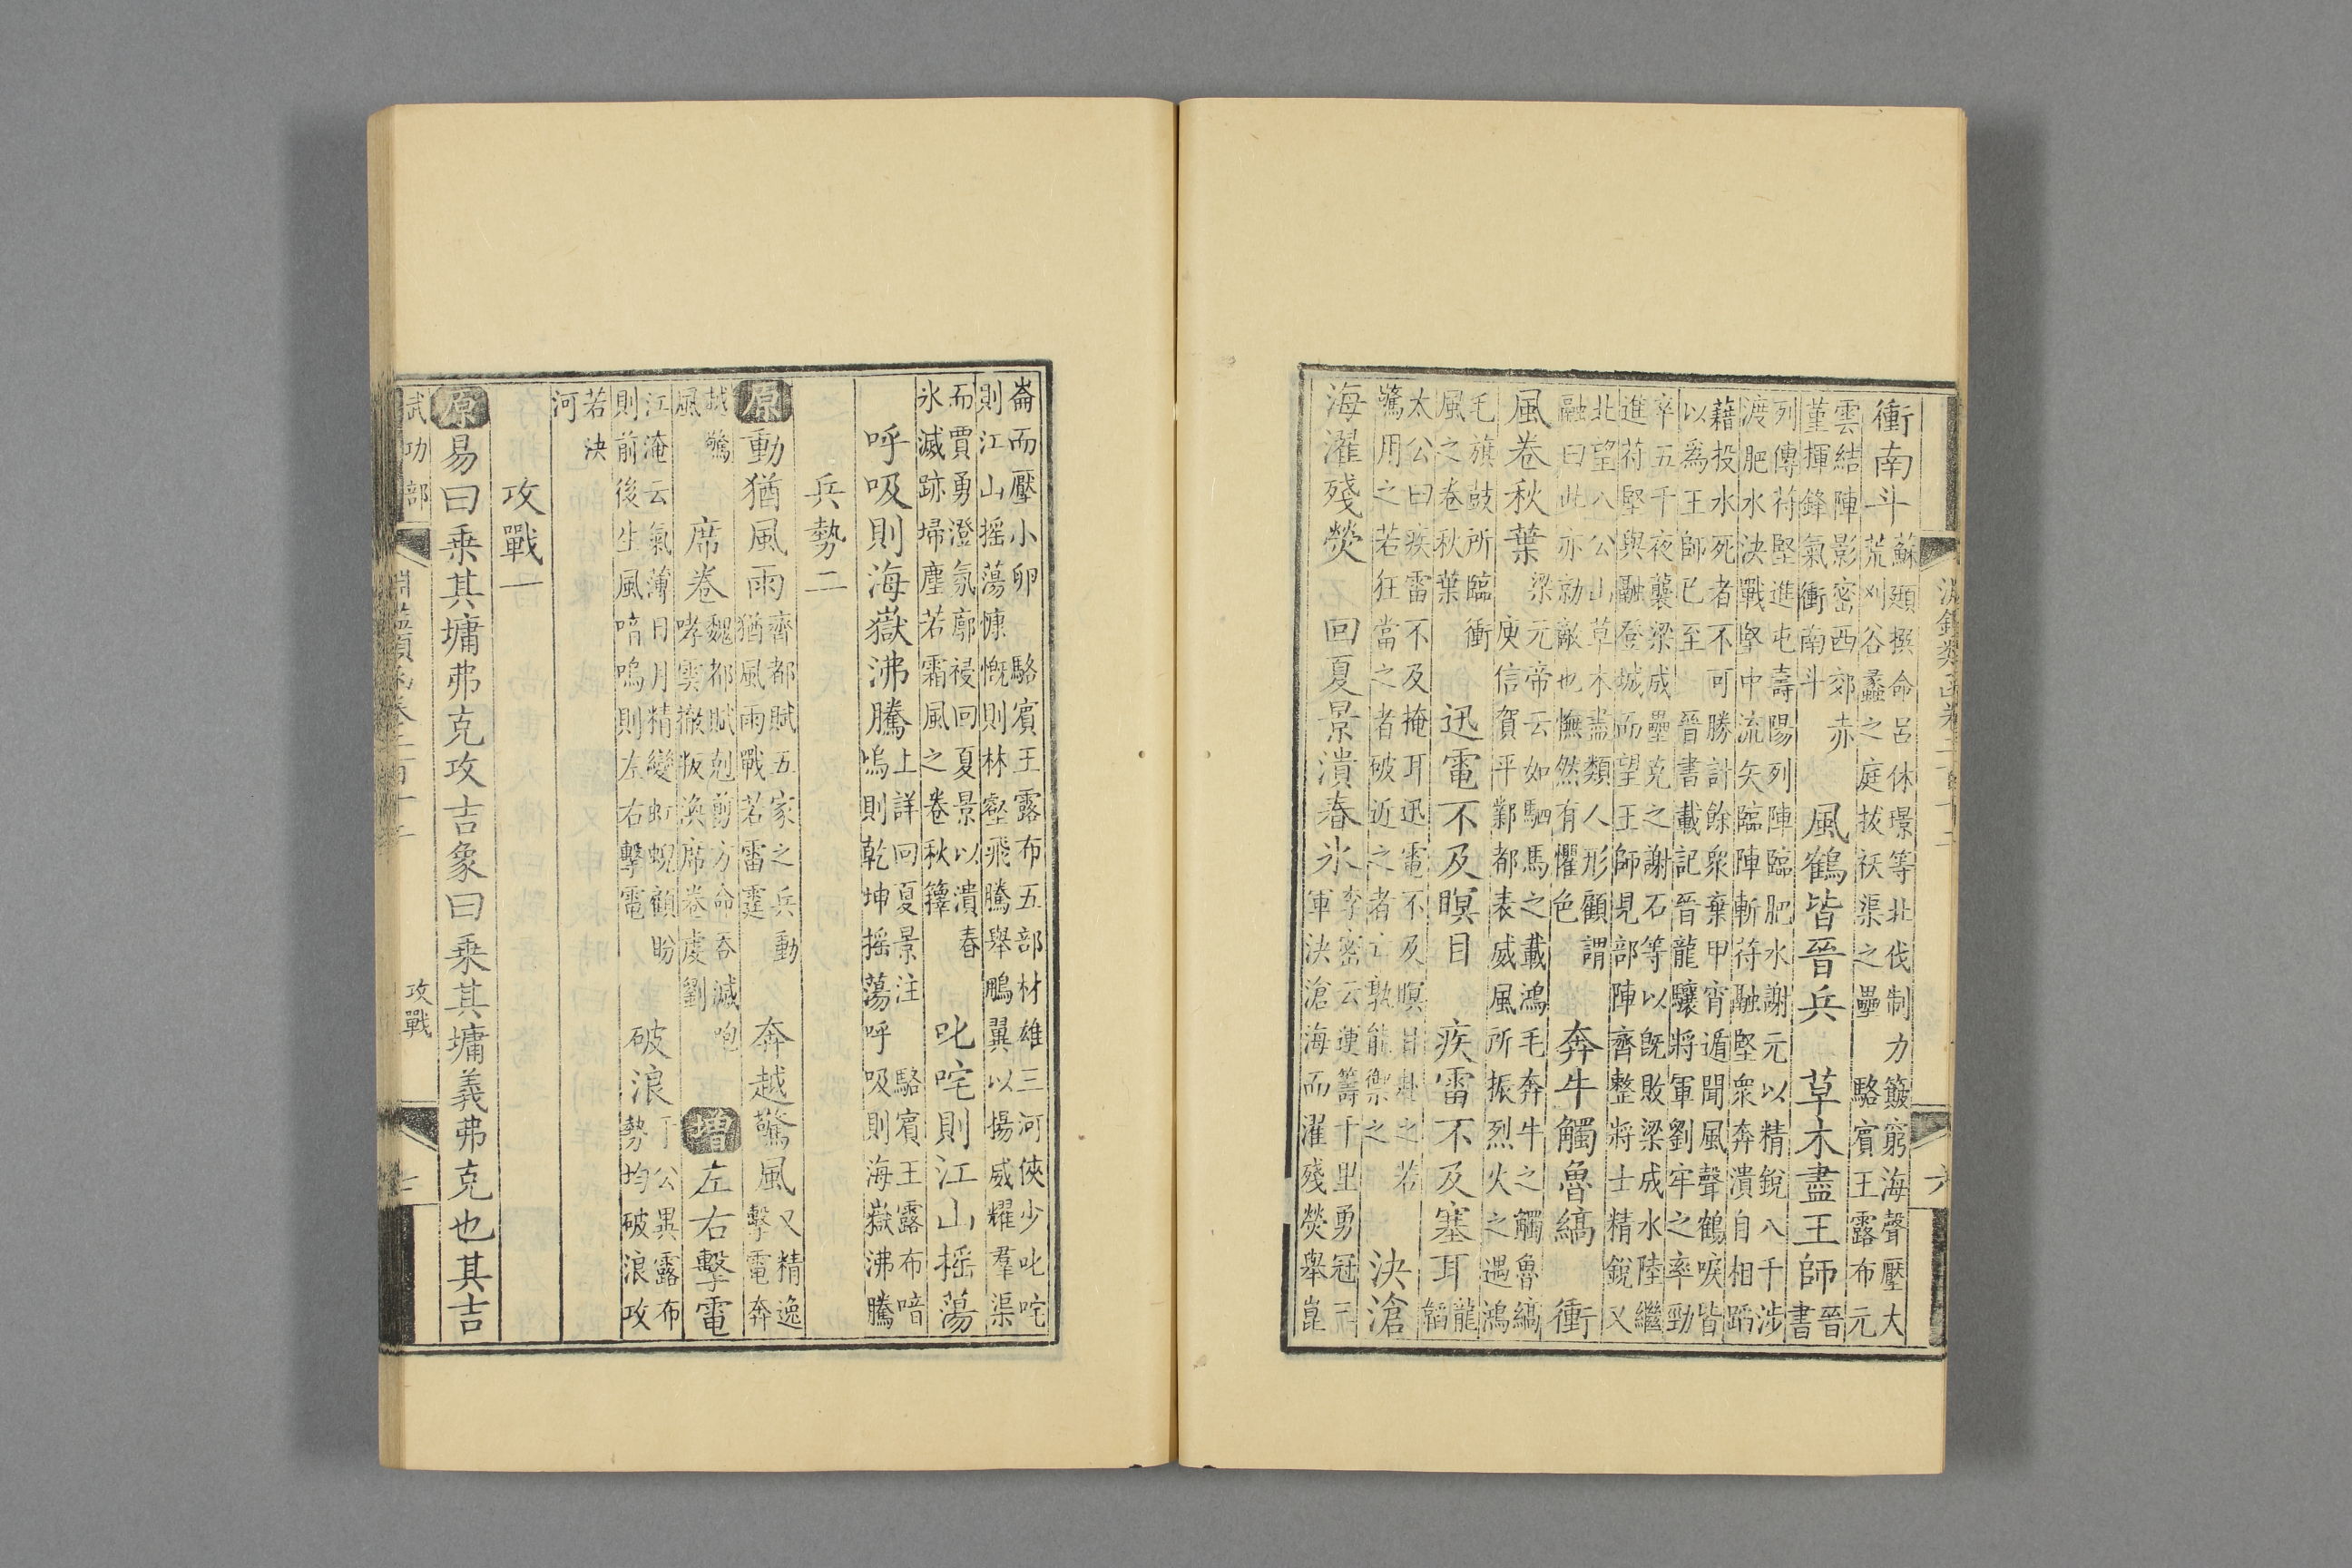 衝南斗
蘇頲撰命呂休璟等北伐制力簸窮海聲壓大
荒刈谷蠡之庭拔祅渠之壘　駱賓王露布元
雲結陣影密西郊赤
堇揮鋒氣衝南斗
風鶴皆晉兵　草木盡王師
晉
書
列傳苻堅進屯壽陽列陣臨肥水謝元以精銳八千涉
渡肥水決戰堅中流矢臨陣斬苻融堅衆奔潰自相蹈
藉投水死者不可勝計餘衆棄甲宵遁聞風聲鶴唳皆
以爲王師已至　晉書載記晉龍驤將軍劉牢之率勁
卒五千夜襲梁成壘克之謝石等以既敗梁成水陸繼
進苻堅與融登城而望王師見部陣齊整將士精銳又
北望八公山草木盡類人形顧謂
融曰此亦勍敵也憮然有懼色
奔牛觸魯縞　衝
風卷秋葉
梁元帝云如駟馬之載鴻毛奔牛之觸魯縞
庾信賀平鄴都表威風所振烈火之遇鴻
毛旗鼓所臨衝
風之卷秋葉
迅電不及瞑目　疾雷不及塞耳
龍
韜
太公曰疾雷不及掩耳迅電不及瞑目赴之若
驚用之若狂當之者破近之者亡孰能禦之
決滄
海濯殘熒　回夏景潰春氷
李密云運籌千里勇冠三
軍決滄海而濯殘熒舉崑
崙而壓小卵　駱賓王露布五部材雄三河俠少叱咤
則江山搖蕩慷慨則林壑飛騰舉鵬翼以揚威耀羣渠
而賈勇澄氛廓祲回夏景以潰春
氷滅跡埽塵若霜風之卷秋籜
叱咤則江山搖蕩
呼吸則海嶽沸騰
上詳回夏景注　駱賓王露布喑
嗚則乾坤搖蕩呼吸則海嶽沸騰
兵勢二
原動猶風雨
齊都賦五家之兵動
猶風雨戰若雷霆
奔越驚風
又精逸
擊電奔
越驚
風
席卷
魏都賦剋翦方命吞滅咆
哮雲撤叛渙席卷虔劉
增左右擊電
江淹云氣薄日月精變虹蜺顧盼
則前後生風喑嗚則左右擊電
破浪
丁公異露布
勢均破浪攻
若決
河
攻戰一
原易曰乗其墉弗克攻吉象曰乗其墉義弗克也其吉
武功部
淵鑑類函卷二百十二
攻戰
七